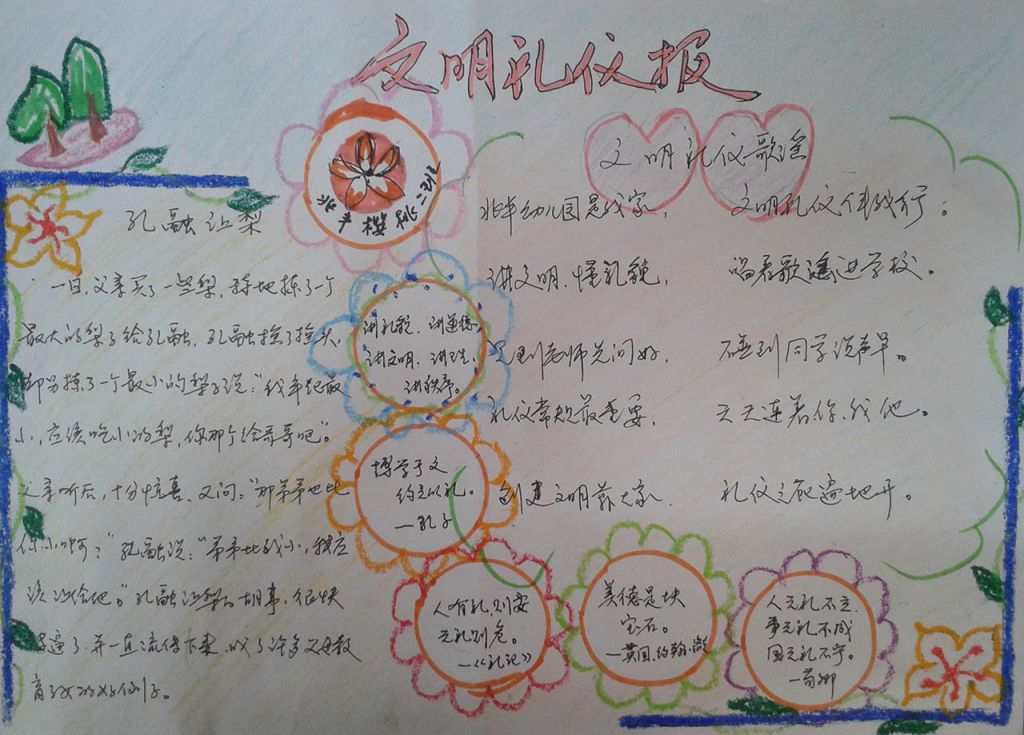 文明礼仪报
孔融让梨
一日,父亲买了一些梨,特地拣了一个
最大的梨子给孔融,孔融摇了摇头,
却另拣了一个最小的梨子说:"我年纪最
小,应该吃小的梨,你那个给哥哥吧"。
父亲听后,十分惊喜,又问:"那弟弟也比
你小啊?"孔融说:"弟弟比我小,我应
该让给他"。孔融让梨的故事,很快
了,并一直流传下来,成了许多父母教
育子女的好例子。
讲礼貌、讲道德、
讲文明、讲卫生、
讲秩序。
博学于文
约之以礼。
—孔子
人有礼则安
无礼则危。
—《礼记》
美德是块
宝石。
—英国.约翰.
人无礼不立
事无礼不成
国无礼不宁。
—荀卿
文明礼仪歌谣
幼儿园是我家, 文明礼仪伴我行。
讲文明.懂礼貌, 唱着歌谣进学校。
见到老师先问好, 碰到同学说声早。
礼仪常规最重要, 天天连着你我他。
创建文明靠大家 礼仪之花遍地开。